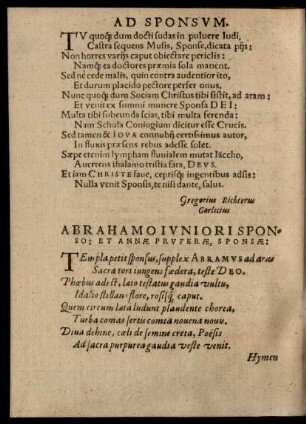 AD SPONSVM.
TV quoq; dum docti sudas in puluere ludi,
Castra sequens Musis, Sponse, dicata pijs:
Non horres varijs caput obiectare periclis:
Namq; ea doctores præmia sola manent.
Sed nè cede malis, quin contra audentior ito,
Et durum placido pectore perfer onus.
Nunc quoq; dum Sociam Christus tibi sistit, ad aram:
Et venit ex summi munere Sponsa DEI:
Multa tibi subeunda scias, tibi multa ferenda:
Nam Schola Coniugium dicitur esse Crucis.
Sed tamen & IOVA connubij certissimus autor,
In fluxis præsens rebus adesse solet.
Sæpe etenim lympham fluuialem mutat Iaccho,
Auertens thalamo tristia fata, DEVS.
Et iam CHRISTE faue, ceptisq; ingentibus adsis:
Nulla venit Sponsis, te nisi dante, salus.
Gregorius Richterus
Gorlicius
ABRAHAMO IVNIORI SPON-
SO; ET ANNÆ PRVFERÆ, SPONSÆ:
TEmpla petit sponsus, supplex ABRAMVS ad aras
Sacra tori iungens fœdera, teste DEO.
Phœbus adest, læto testatus gaudia vultu,
Idalio stellan flore, rosisq; caput.
Quem circum læta ludunt plaudente chorea,
Turba comas sertis comta nouena nouis.
Diua dehinc, cœli de semine creta, Poësis
Ad sacra purpurea gaudia veste venit.
Hymen